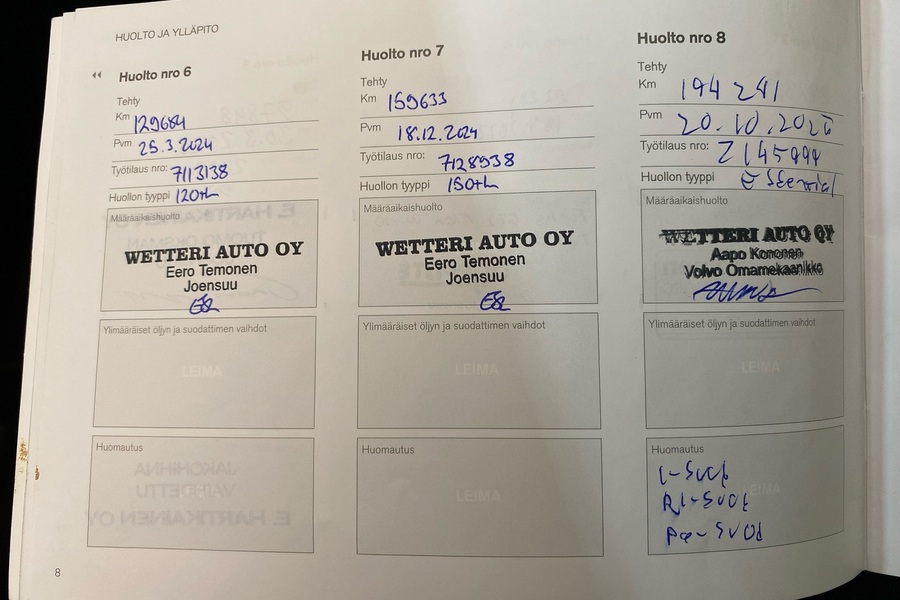 HUOLTO JA YLLÄPITO
Huolto nro 6
Tehty
Km 129684
Pvm 25.3.2024
Työtilaus nro: 7113138
Huollon tyyppi 120th
Määräaikaishuolto
WETTERI AUTO OY
Eero Temonen
Joensuu
Ylimääräiset öljyn ja suodattimen vaihdot
LEIMA
Huomautus
Huolto nro 7
Tehty
Km 159633
Pvm 18.12.2024
Työtilaus nro: 7128938
Huollon tyyppi 150th
Määräaikaishuolto
WETTERI AUTO OY
Eero Temonen
Joensuu
Ylimääräiset öljyn ja suodattimen vaihdot
LEIMA
Huomautus
LEIMA
Huolto nro 8
Tehty
Km 194 241
Pvm 20.10.2025
Työtilaus nro:
Huollon tyyppi
Määräaikaishuolto
WETTERI AUTO OY
Aapo Kononen
Volvo Omamekaanikko
Ylimääräiset öljyn ja suodattimen vaihdot
LEIMA
Huomautus
8